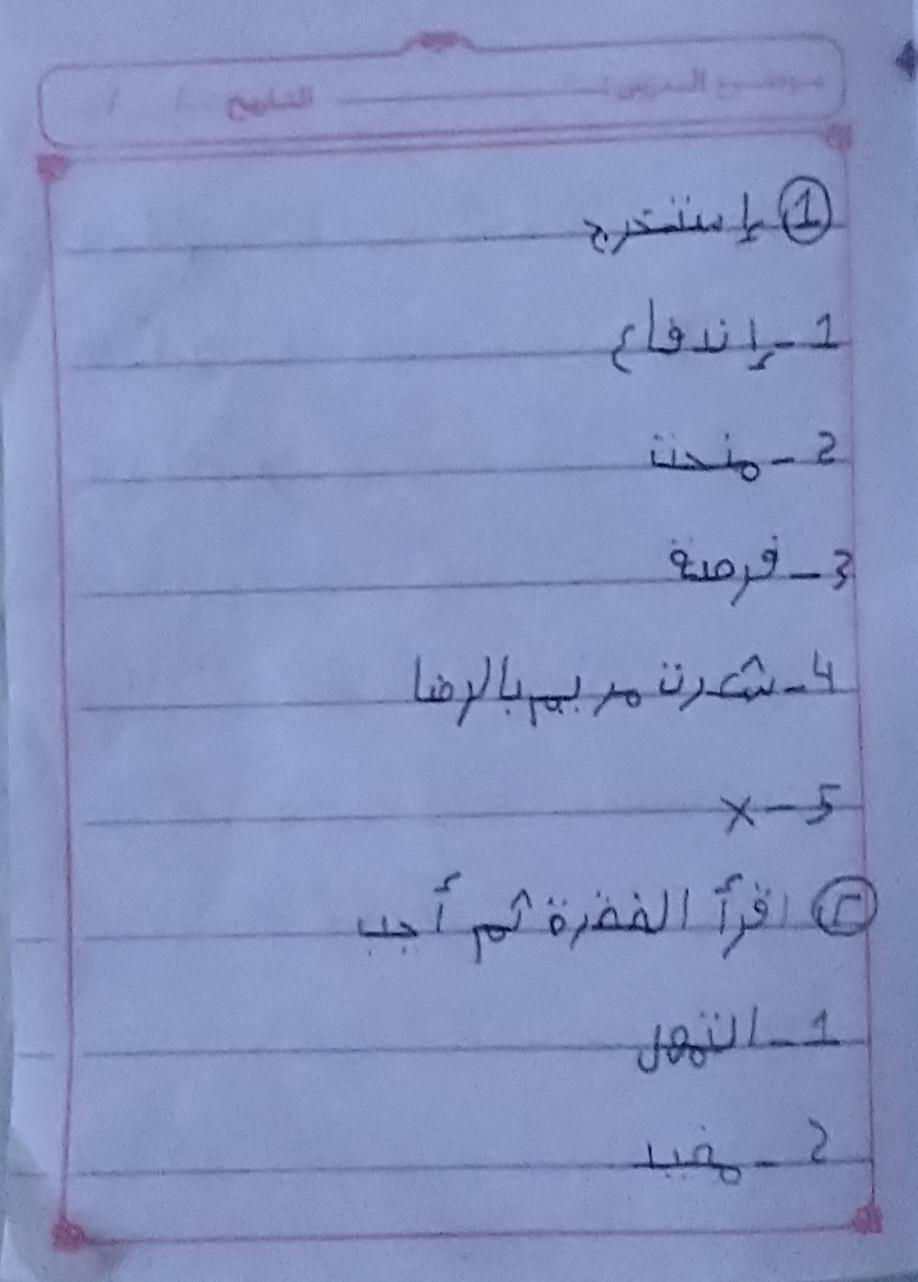 موضوع الدرس : التاريخ / /
① إستخرج
1 - إندفاع
2 - منحت
3 - فرصة
4 - شعرت مريم بالرضا
5 - x
② اقرأ الفقرة ثم أجب
1 - النمل
2 - مفيد